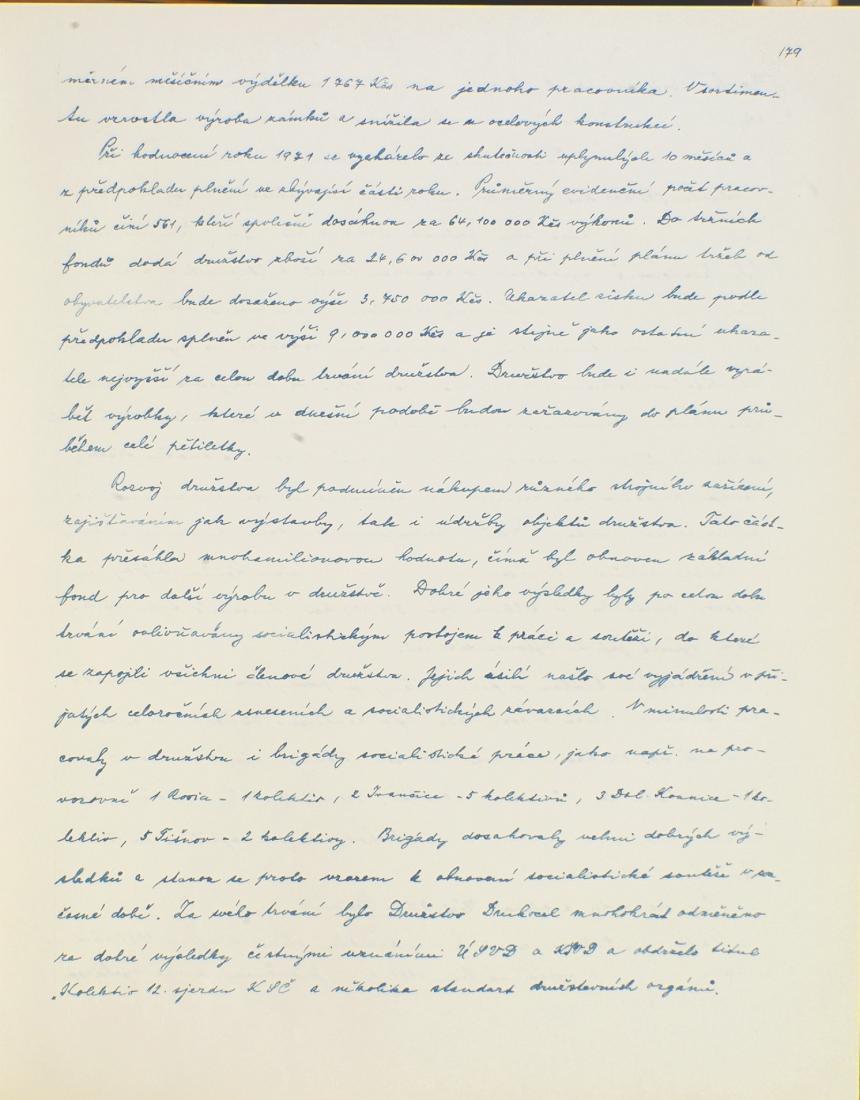 179
měrném měsíčním výdělku 1767 Kčs na jednoho pracovníka. V sortimen-
tu vzrostla výroba zámků a snížila se u ocelových konstrukcí.
Při hodnocení roku 1971 se vycházelo ze skutečnosti uplynulých 10 měsíců a
z předpokladu plnění ve zbývající části roku. Průměrný evidenční počet pracov-
níků činí 561, kteří společně dosáhnou za 64,100 000 Kčs výkonů. Do tržních
fondů dodá družstvo zboží za 24,600 000 Kčs a při plnění plánu tržeb od
obyvatelstva bude dosaženo výše 3,750 000 Kčs. Ukazatel zisku bude podle
předpokladu splněn ve výši 9,000 000 Kčs a je stejně jako ostatní ukaza-
tele nejvyšší za celou dobu trvání družstva. Družstvo bude i nadále vyrá-
bět výrobky, které v dnešní podobě budou zařazovány do plánu prů-
během celé pětiletky.
Rozvoj družstva byl podmíněn nákupem různého strojního zařízení,
zajišťováním jak výstavby, tak i údržby objektů družstva. Tato část-
ka přesáhla mnohamilionovou hodnotu, čímž byl obnoven základní
fond pro další výrobu v družstvě. Dobré jeho výsledky byly po celou dobu
trvání ovlivňovány socialistickým postojem k práci a soutěži, do které
se zapojili všichni členové družstva. Jejich úsilí našlo své vyjádření v při-
jatých celoročních usneseních a socialistických závazcích. V minulosti pra-
covaly v družstvu i brigády socialistické práce, jako např. na pro-
vozovně 1 Rosice - 1 kolektiv, 2 Ivančice - 5 kolektivů, 3 Dol. Kounice - 1 ko-
lektiv, 5 Tišnov - 2 kolektivy. Brigády dosahovaly velmi dobrých vý-
sledků a stanou se proto vzorem k obnovení socialistické soutěže v sou-
časné době. Za svého trvání bylo Družstvo Drukocel mnohokrát odměněno
za dobré výsledky čestnými uznáními ÚSVD a KSVD a obdrželo titul
„Kolektiv 12. sjezdu KSČ a několika standart družstevních orgánů.